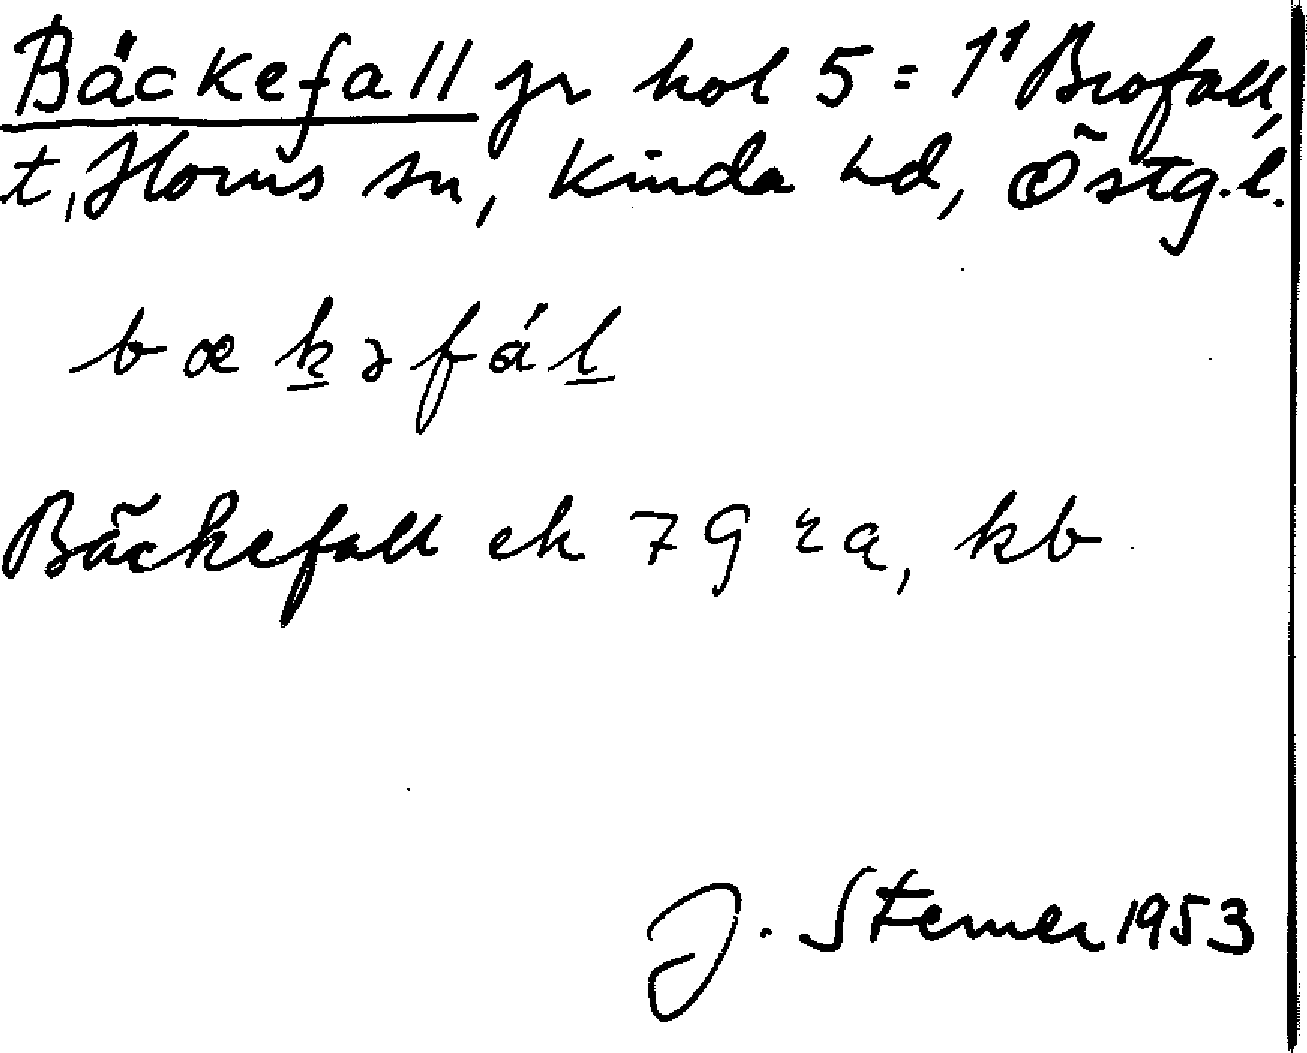 Bäckefall gr kol 5 = 1¹ Brofall,
t, Horns sn, Kinda hd, Östg.l.
bækəfál
Bäckefall ek 79 ra, kb
J. Sterner 1953